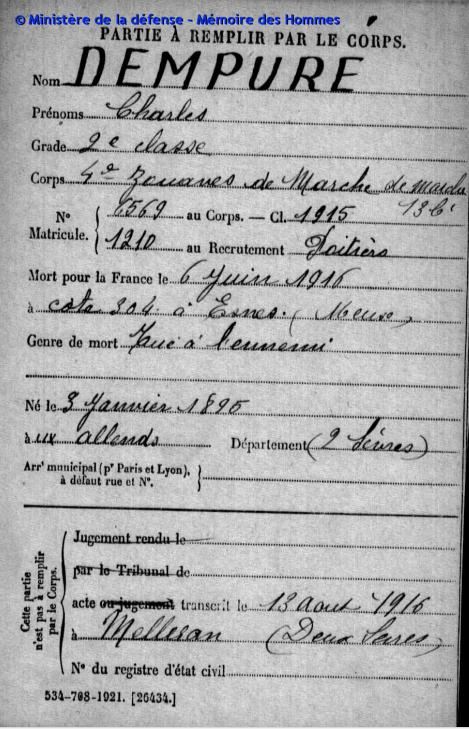 © Ministère de la défense - Mémoire des Hommes
PARTIE À REMPLIR PAR LE CORPS.
Nom DEMPURE
Prénoms Charles
Grade 2e classe
Corps 4e Zouaves de Marche de marche
13 Cie
N° Matricule. 6569 au Corps. — Cl. 1915
1210 au Recrutement Poitiers
Mort pour la France le 6 Juin 1916
à cote 304 à Esnes (Meuse)
Genre de mort Tué à l'ennemi
Né le 3 Janvier 1895
à ux allends Département (2 Sèvres)
Arrt municipal (pr Paris et Lyon), à défaut rue et N°.
Cette partie n'est pas à remplir par le Corps.
Jugement rendu le
par le Tribunal de
acte ou jugement transcrit le 13 aout 1916
à Melleran (Deux Sevres)
N° du registre d'état civil
534-708-1921. [26434.]